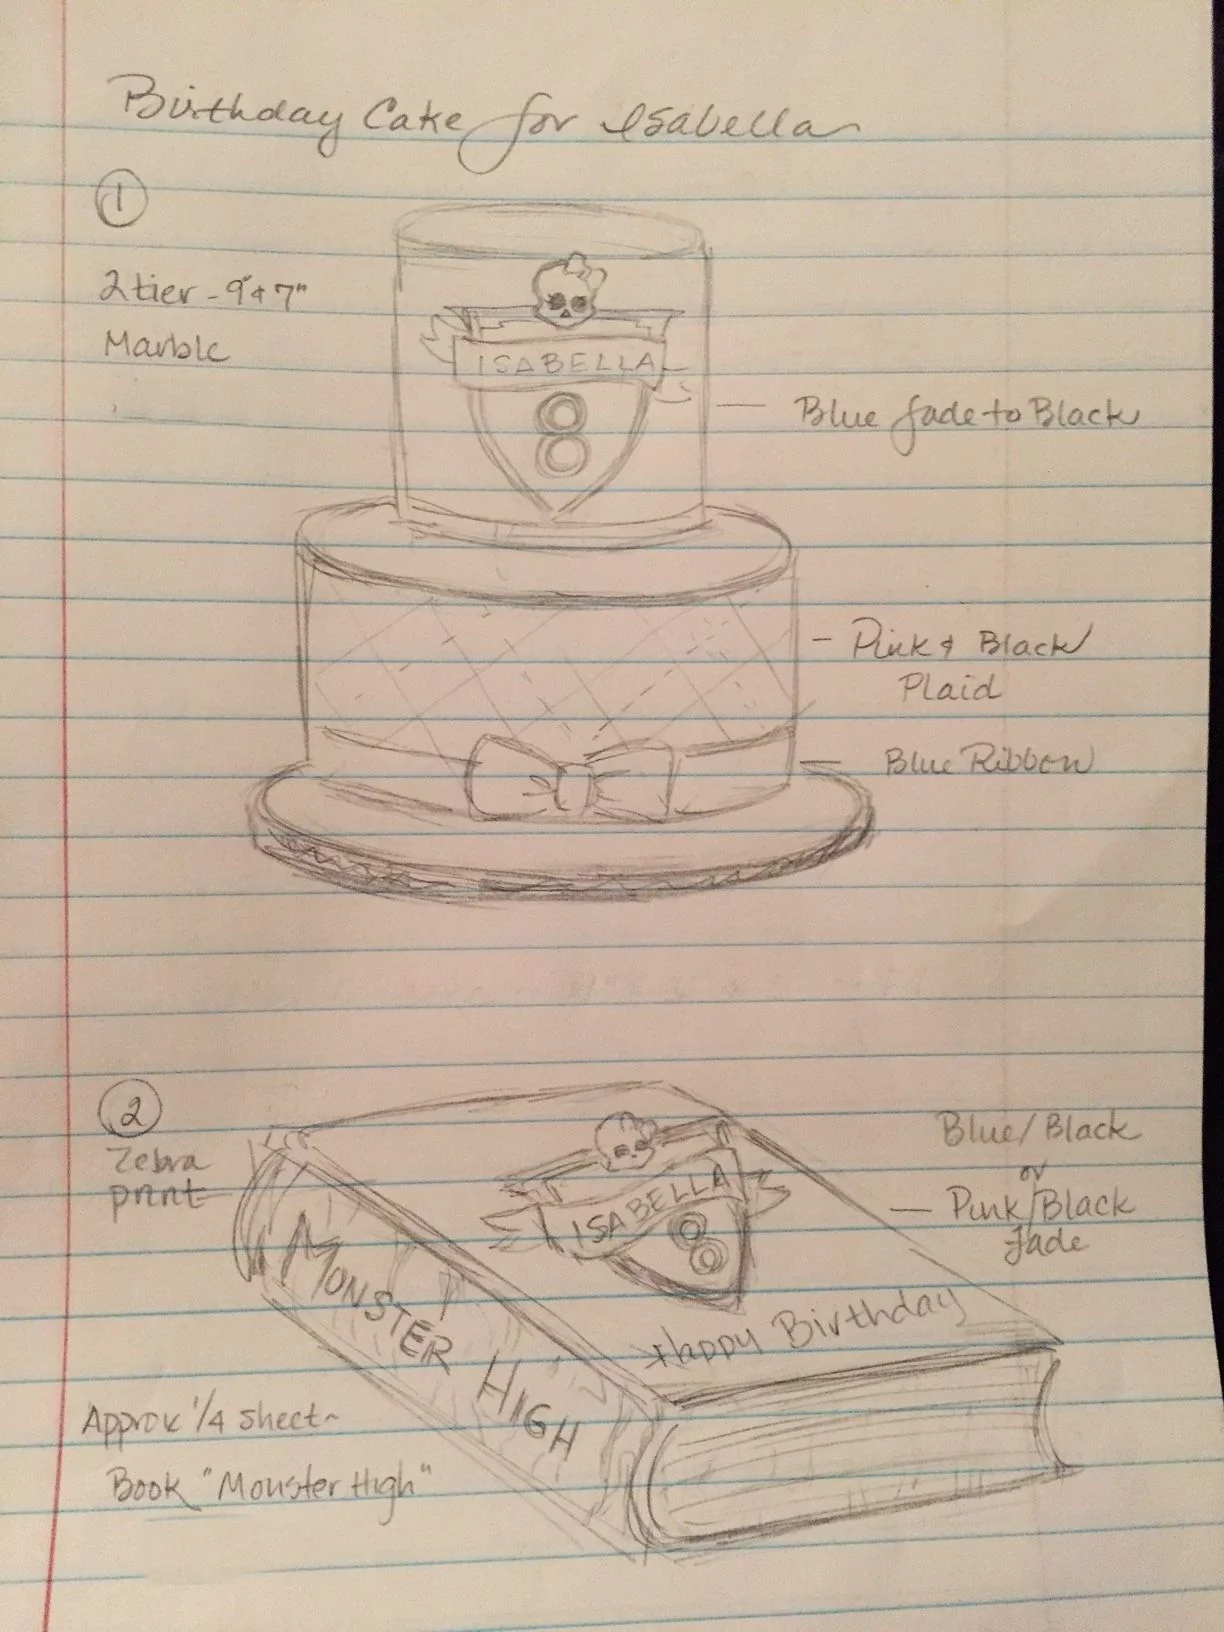 Birthday Cake for Isabella
1
2 tier - 9" & 7"
Marble
ISABELLA
8
Blue fade to Black
Pink & Black
Plaid
Blue Ribbon
2
Zebra
print
Blue/Black
or
Pink/Black
Fade
ISABELLA
8
MONSTER HIGH
Happy Birthday
Approx 1/4 sheet-
Book "Monster High"